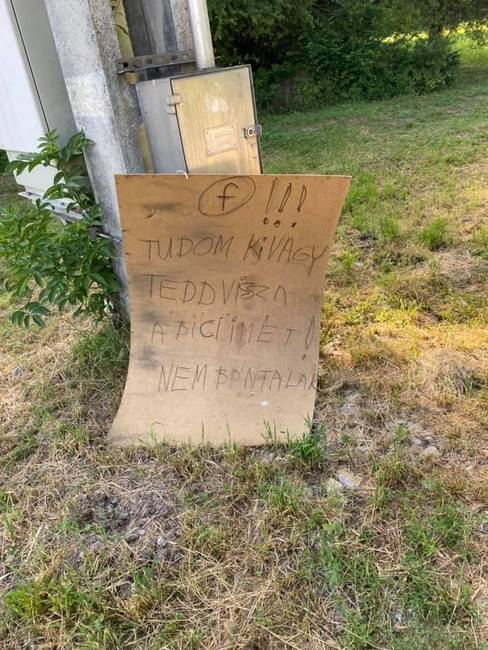 f !!!
TUDOM KIVAGY
TEDDVISZA
A BICLIMET!
NEM BÁNTALAK